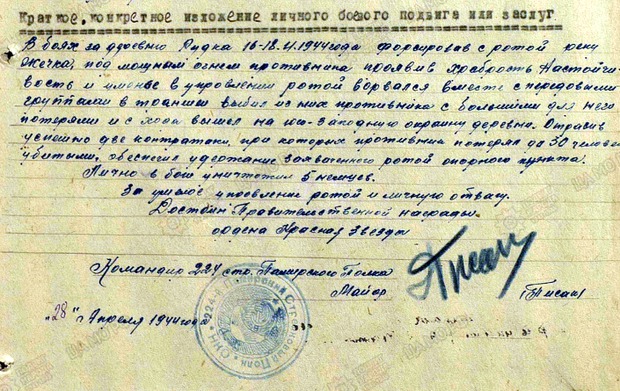 Краткое, конкретное изложение личного боевого подвига или заслуг
В боях за деревню Рудка 16-18.4.1944 года форсировав с ротой реку
под мощным огнем противника проявив храбрость настойчи-
вость и уменье в управлении ротой ворвался вместе с передовыми
группами в траншеи выбил из них противника с большими для него
потерями и с хода вышел на юго-западную окраину деревни. Отразив
успешно две контратаки, при которых противник потерял до 30 человек
убитыми, обеспечил удержание захваченного ротой опорного пункта.
Лично в бою уничтожил 5 немцев.
За умелое управление ротой и личную отвагу.
Достоин Правительственной награды
ордена Красная Звезда
Командир 224 стр. Памирского Полка
Майор (Писан)
"28" Апреля 1944 года